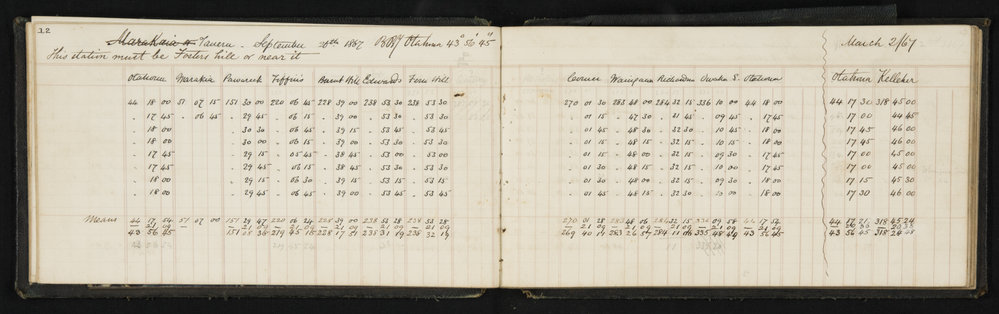 32
Marakaia or Tanera. September 20th 1867 Otahuna 43° 56' 45"
March 2/67
This station must be Fosters hill or near it
Otahuna Marakia Tiffins Burnt Hill Edwards Fern Hill
44 18 00 51 07 15 151 30 00 220 06 45 228 39 00 238 53 30 238 53 30
„ 17 45 „ 06 45 „ 29 45 „ 06 15 „ 39 00 „ 53 30 „ 53 30
„ 18 00 „ 30 30 „ 06 45 „ 39 15 „ 53 45 „ 53 30
„ 18 00 „ 30 00 „ 06 15 „ 39 00 „ 53 30 „ 53 30
„ 17 45 „ 29 15 „ 05 45 „ 38 45 „ 53 00 „ 53 00
„ 17 45 „ 29 45 „ 06 15 „ 38 45 „ 53 30 „ 53 00
„ 18 00 „ 29 15 „ 06 30 „ 39 15 „ 53 15 „ 53 15
„ 18 00 „ 29 45 „ 06 45 „ 39 00 „ 53 45 „ 53 45
Means 44 17 54 51 07 00 151 29 47 220 06 24 228 39 00 238 53 28 238 53 28
21 09 21 09 21 09 21 09 21 09
43 56 45 151 08 38 219 45 15 228 17 51 238 32 19
Richardsons Otahuna
270 01 30 283 48 00 284 32 15 336 10 00 44 18 00
„ 01 15 „ 47 30 „ 31 45 „ 09 45 „ 17 45
„ 01 45 „ 48 30 „ 32 30 „ 10 45 „ 18 00
„ 01 15 „ 48 15 „ 32 15 „ 10 15 „ 18 00
„ 01 15 „ 48 00 „ 32 15 „ 09 30 „ 17 45
„ 01 30 „ 48 15 „ 32 15 „ 10 00 „ 17 45
„ 01 30 „ 48 00 „ 32 15 „ 09 30 „ 18 00
„ 01 45 „ 48 15 „ 32 30 „ 10 00 „ 18 00
270 01 28 283 48 06 284 32 15 09 58 44 17 54
21 09 21 09 21 09 21 09 21 09
269 40 19 283 26 57 284 11 06 335 48 49 43 56 45
Otahuna Kelleher
44 17 30 318 45 00
„ 17 00 44 45
„ 17 45 „ 46 00
„ 17 45 „ 46 00
„ 17 00 „ 45 00
„ 17 00 „ 45 00
„ 17 15 „ 45 30
„ 17 30 „ 46 00
44 17 21 318 45 24
43 56 45 318 24 48